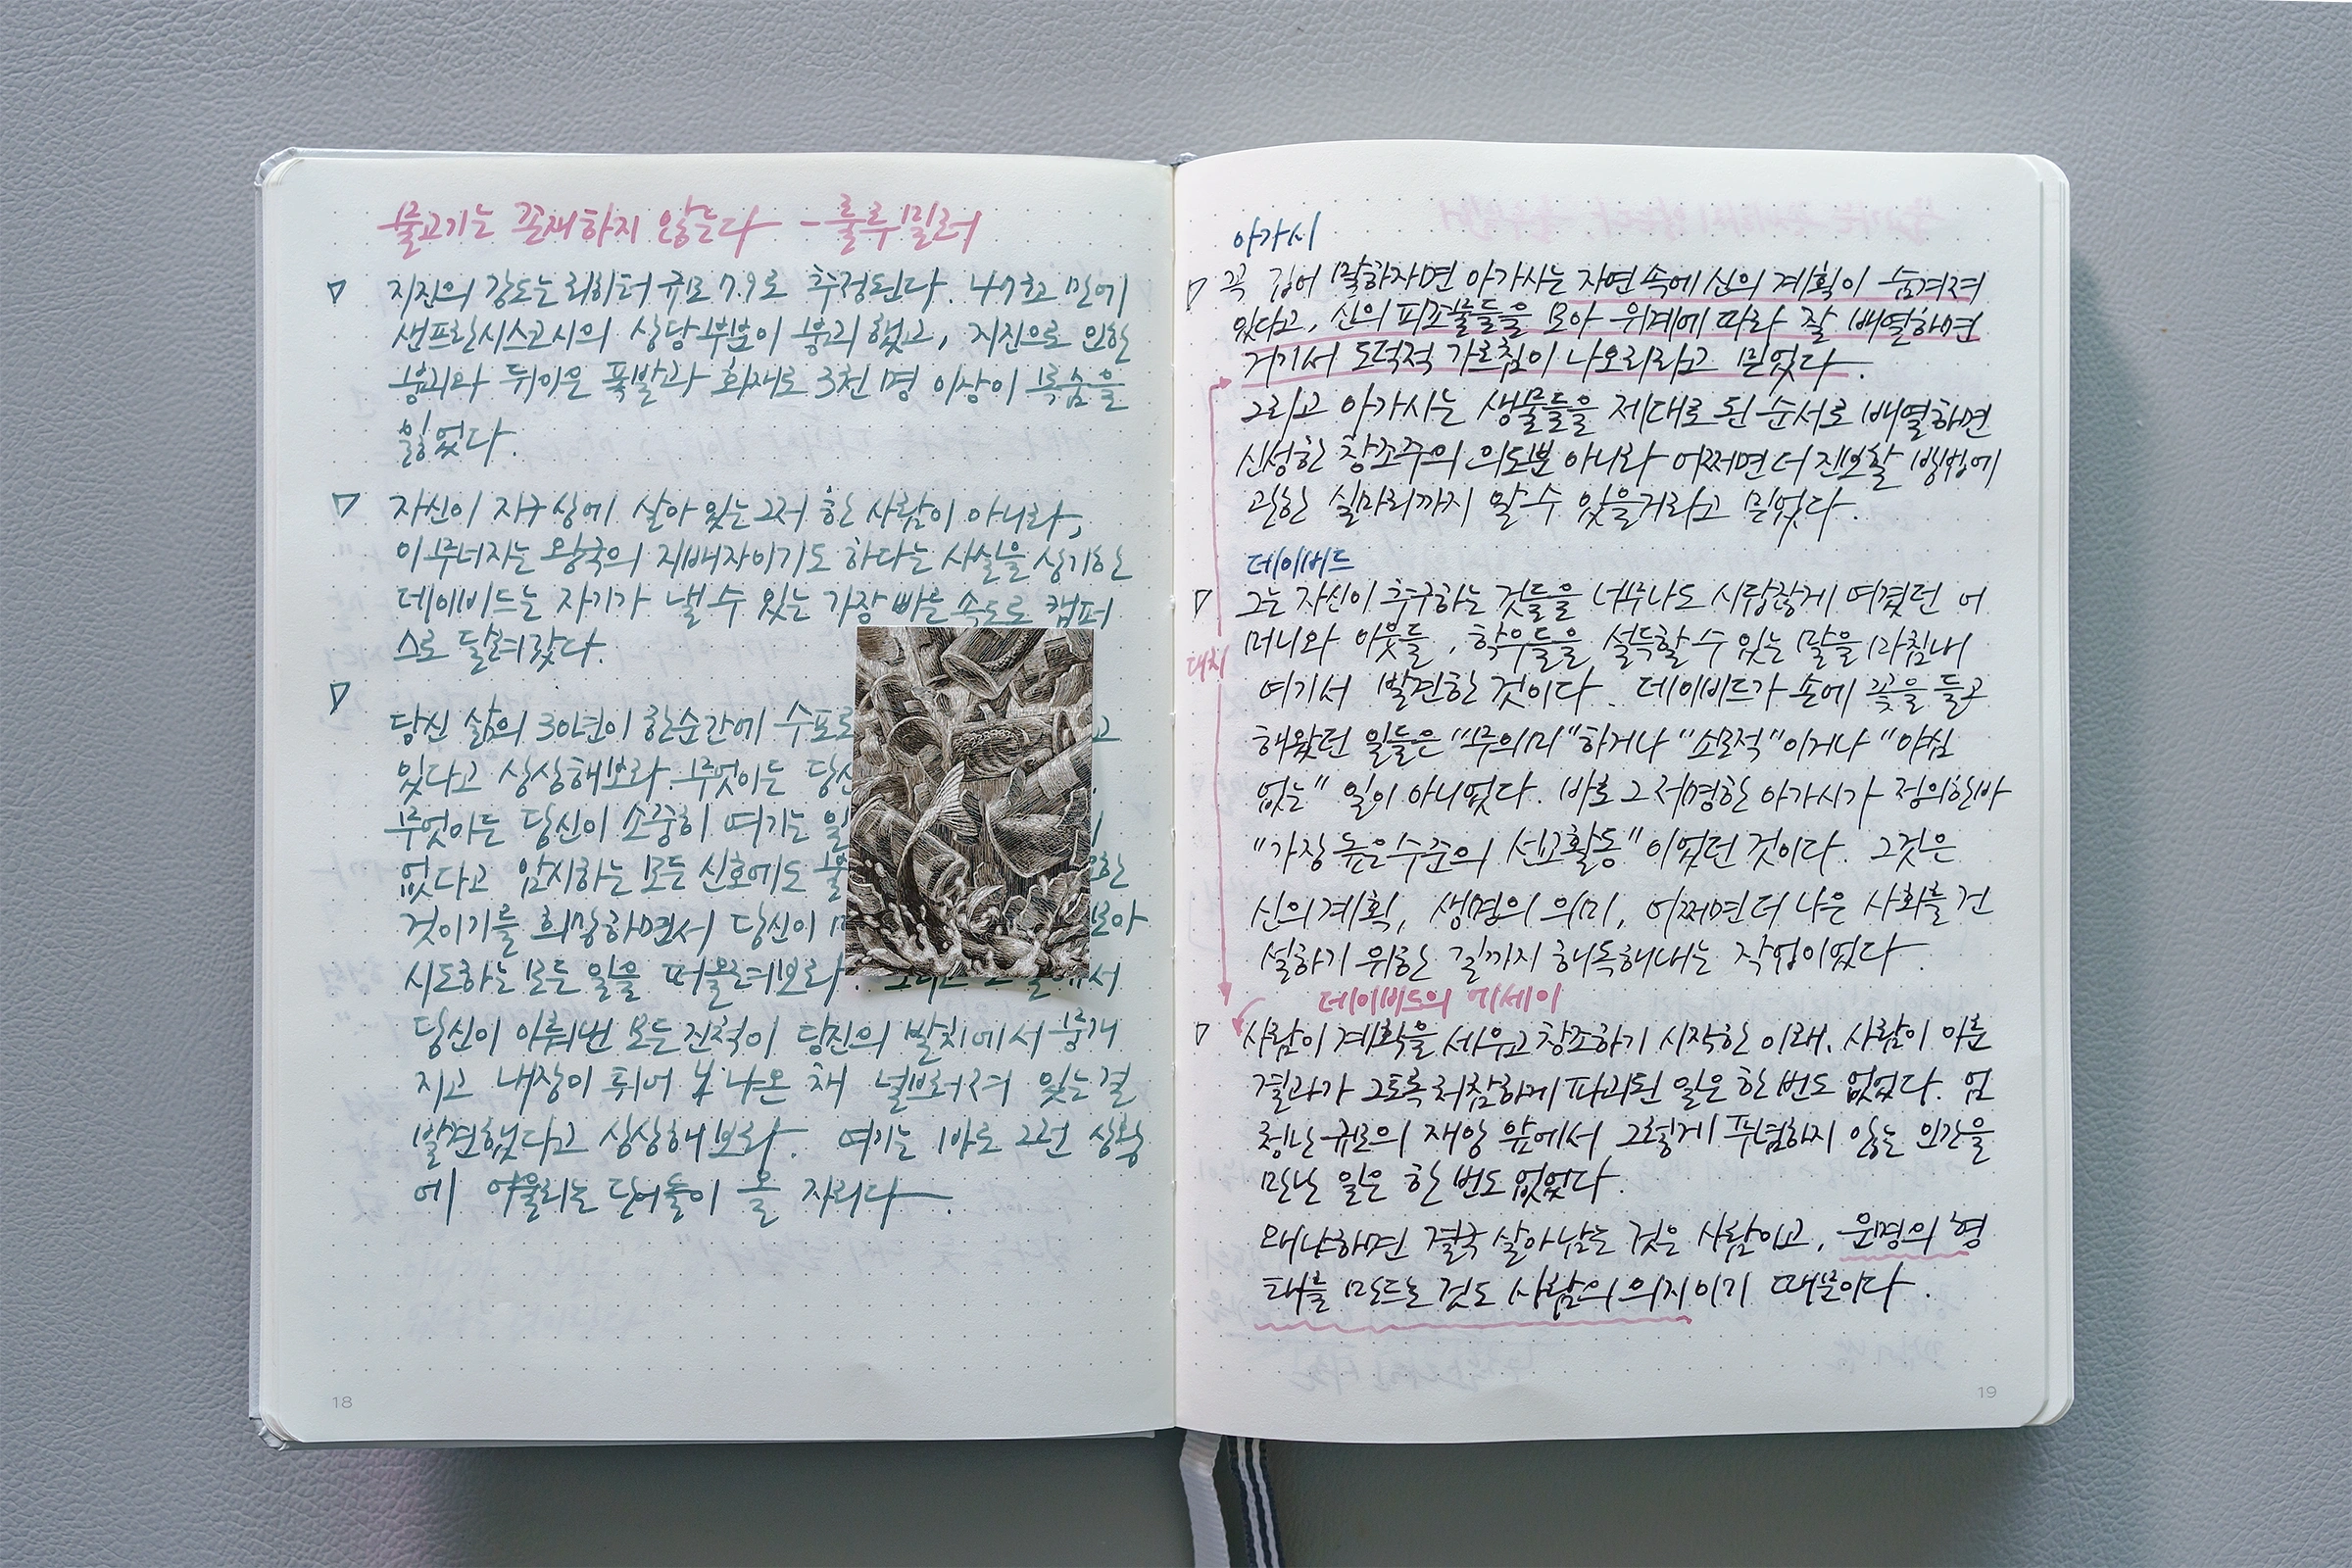 물고기는 존재하지 않는다 - 룰루 밀러
지진의 강도는 리히터 규모 7.9로 추정된다. 47초 만에
샌프란시스코시의 상당부분이 붕괴했고, 지진으로 인한
붕괴와 뒤이은 폭발과 화재로 3천 명 이상이 목숨을
잃었다.
자신이 지구상에 살아 있는 그저 한 사람이 아니라,
이 무너지는 왕국의 지배자이기도 하다는 사실을 상기한
데이비드는 자기가 낼 수 있는 가장 빠른 속도로 캠퍼
스로 달려갔다.
당신 삶의 30년이 한순간에 수포로 고
있다고 상상해보라. 무엇이든 당신
무엇이든 당신이 소중히 여기는 일
없다고 암시하는 모든 신호에도 불 한
것이기를 희망하면서 당신이 매 모아
시도하는 모든 일을 떠올려보라. 그리고 그 일에서
당신이 이뤄낸 모든 진척이 당신의 발치에서 뭉개
지고 내장이 튀어 나온 채 널브러져 있는 걸
발견했다고 상상해보라. 여기는 바로 그런 상황
에 어울리는 단어들이 올 자리다.
18
아가시
꼭 집어 말하자면 아가시는 자연 속에 신의 계획이 숨겨져
있다고, 신의 피조물들을 모아 위계에 따라 잘 배열하면
거기서 도덕적 가르침이 나오리라고 믿었다.
그리고 아가시는 생물들을 제대로 된 순서로 배열하면
신성한 창조주의 의도뿐 아니라 어쩌면 더 진보할 방법에
관한 실마리까지 알 수 있을거라고 믿었다.
데이비드
그는 자신이 추구하는 것들을 너무나도 시답잖게 여겼던 어
머니와 이웃들, 학우들을 설득할 수 있는 말을 마침내
대치
여기서 발견한 것이다. 데이비드가 손에 꽃을 들고
해왔던 일들은 "무의미"하거나 "소모적"이거나 "야심
없는" 일이 아니었다. 바로 그 저명한 아가시가 정의한바
"가장 높은수준의 선교활동"이었던 것이다. 그것은
신의 계획, 생명의 의미, 어쩌면 더 나은 사회를 건
설하기 위한 길까지 해독해내는 작업이었다.
데이비드의 에세이
사람이 계획을 세우고 창조하기 시작한 이래, 사람이 이룬
결과가 그토록 처참하게 파괴된 일은 한 번도 없었다. 엄
청난 규모의 재앙 앞에서 그렇게 푸념하지 않는 인간을
만난 일은 한 번도 없었다.
왜냐하면 결국 살아남는 것은 사람이고, 운명의 형
태를 만드는 것도 사람의 의지이기 때문이다.
19